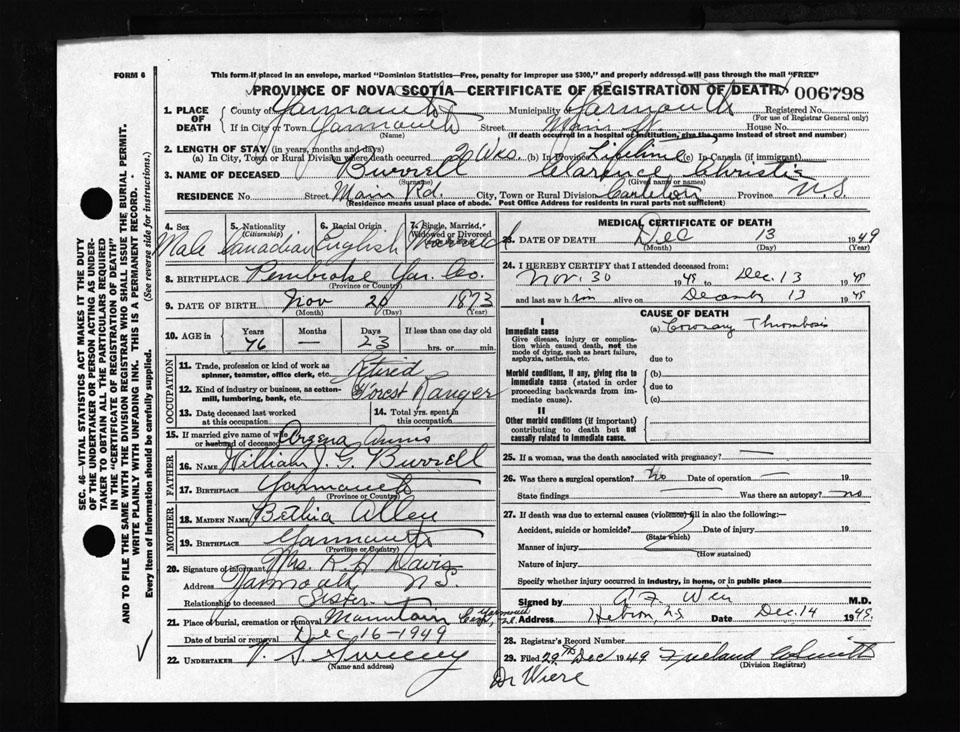 FORM 6
This form if placed in an envelope, marked "Dominion Statistics—Free, penalty for improper use $300," and properly addressed will pass through the mail "FREE"
PROVINCE OF NOVA SCOTIA—CERTIFICATE OF REGISTRATION OF DEATH 006798
1. PLACE OF DEATH County of Yarmouth Municipality of Yarmouth Registered No.
(For use of Registrar General only)
If in City or Town Yarmouth Street Main St. House No.
(Name) (If death occurred in a hospital or institution, give the name instead of street and number)
2. LENGTH OF STAY (in years, months and days)
(a) In City, Town or Rural Division where death occurred 2 Wks. (b) In Province Lifetime (c) In Canada (if immigrant)
3. NAME OF DECEASED Burrell Clarence Christie
(Surname) (Given name or names)
RESIDENCE No. Street Main Rd. City, Town or Rural Division Carleton Province N.S.
(Residence means usual place of abode. Post Office Address for residents in rural parts not sufficient)
4. Sex 5. Nationality (Citizenship) 6. Racial Origin 7. Single, Married, Widowed or Divorced
Male Canadian English
8. BIRTHPLACE Pembroke Yar. Co.
(Province or Country)
9. DATE OF BIRTH Nov 20 1873
(Month) (Day) (Year)
10. AGE in Years Months Days If less than one day old
76 — 23 hrs. or min.
OCCUPATION
11. Trade, profession or kind of work as spinner, teamster, office clerk, etc. Retired
12. Kind of industry or business, as cotton-mill, lumbering, bank, etc. Forest Ranger
13. Date deceased last worked at this occupation
14. Total yrs. spent in this occupation
15. If married give name of wife or husband of deceased Annis
FATHER
16. NAME William J. G. Burrell
17. BIRTHPLACE Yarmouth
(Province or Country)
MOTHER
18. MAIDEN NAME Bethia Allen
19. BIRTHPLACE Yarmouth
(Province or Country)
20. Signature of informant Mrs. R. H. Davis
Address Yarmouth N.S.
Relationship to deceased Sister
21. Place of burial, cremation or removal Mountain Cem., Yarmouth
Date of burial or removal Dec 16-1949
22. UNDERTAKER V. S. Sweeney
(Name and address)
MEDICAL CERTIFICATE OF DEATH
23. DATE OF DEATH Dec 13 1949
(Month) (Day) (Year)
24. I HEREBY CERTIFY that I attended deceased from:
Nov. 30 1949 to Dec. 13 1949
and last saw him alive on December 13 1949
CAUSE OF DEATH
I
Immediate cause (a) Coronary Thrombosis
Give disease, injury or complication which caused death, not the mode of dying, such as heart failure, asphyxia, asthenia, etc.
due to
Morbid conditions, if any, giving rise to immediate cause (stated in order proceeding backwards from immediate cause).
(b)
due to
(c)
II
Other morbid conditions (if important) contributing to death but not causally related to immediate cause.
25. If a woman, was the death associated with pregnancy? —
26. Was there a surgical operation? No Date of operation — 19
State findings — Was there an autopsy? no
27. If death was due to external causes (violence) fill in also the following:—
Accident, suicide or homicide? Date of injury 19
(State which)
Manner of injury
(How sustained)
Nature of injury
Specify whether injury occurred in industry, in home, or in public place
Signed by A F Weir M.D.
Address Hebron, N.S. Date Dec. 14 1949.
28. Registrar's Record Number
29. Filed 29th Dec 1949
(Division Registrar)
Dr Wiere
SEC. 46—VITAL STATISTICS ACT MAKES IT THE DUTY
OF THE UNDERTAKER OR PERSON ACTING AS UNDER-
TAKER TO OBTAIN ALL THE PARTICULARS REQUIRED
IN THE "CERTIFICATE OF REGISTRATION OF DEATH"
AND TO FILE THE SAME WITH THE DIVISION REGISTRAR WHO SHALL ISSUE THE BURIAL PERMIT.
WRITE PLAINLY WITH UNFADING INK. THIS IS A PERMANENT RECORD.
Every item of Information should be carefully supplied. (See reverse side for instructions.)